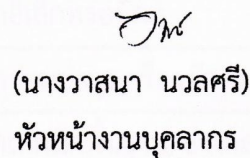 (นางวาสนา นวลศรี)
หัวหน้างานบุคลากร